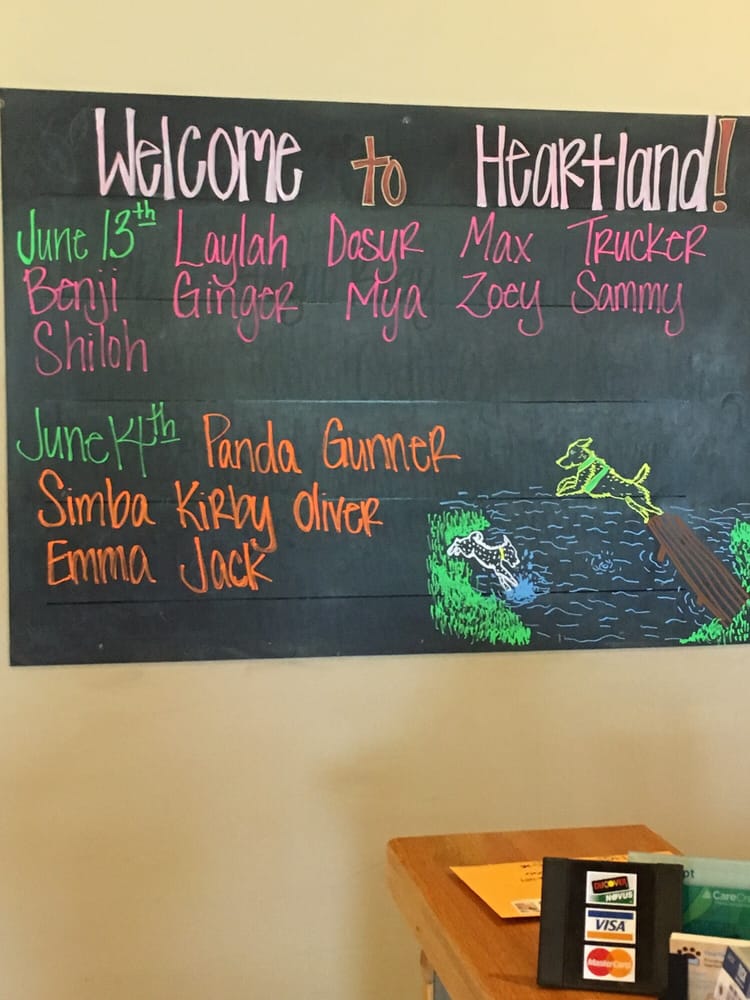 Welcome to Heartland!
June 13th Laylah Dosyr Max Trucker
Benji Ginger Mya Zoey Sammy
Shiloh
June 14th Panda Gunner
Simba Kirby Oliver
Emma Jack
DISCOVER
NOVUS
VISA
MasterCard